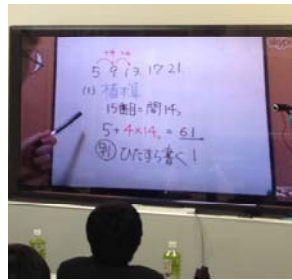 +4 +4
5 9 13 17 21
(1) 植木算
15番目=間14つ
5+4×14=61
別 ひたすら書く!